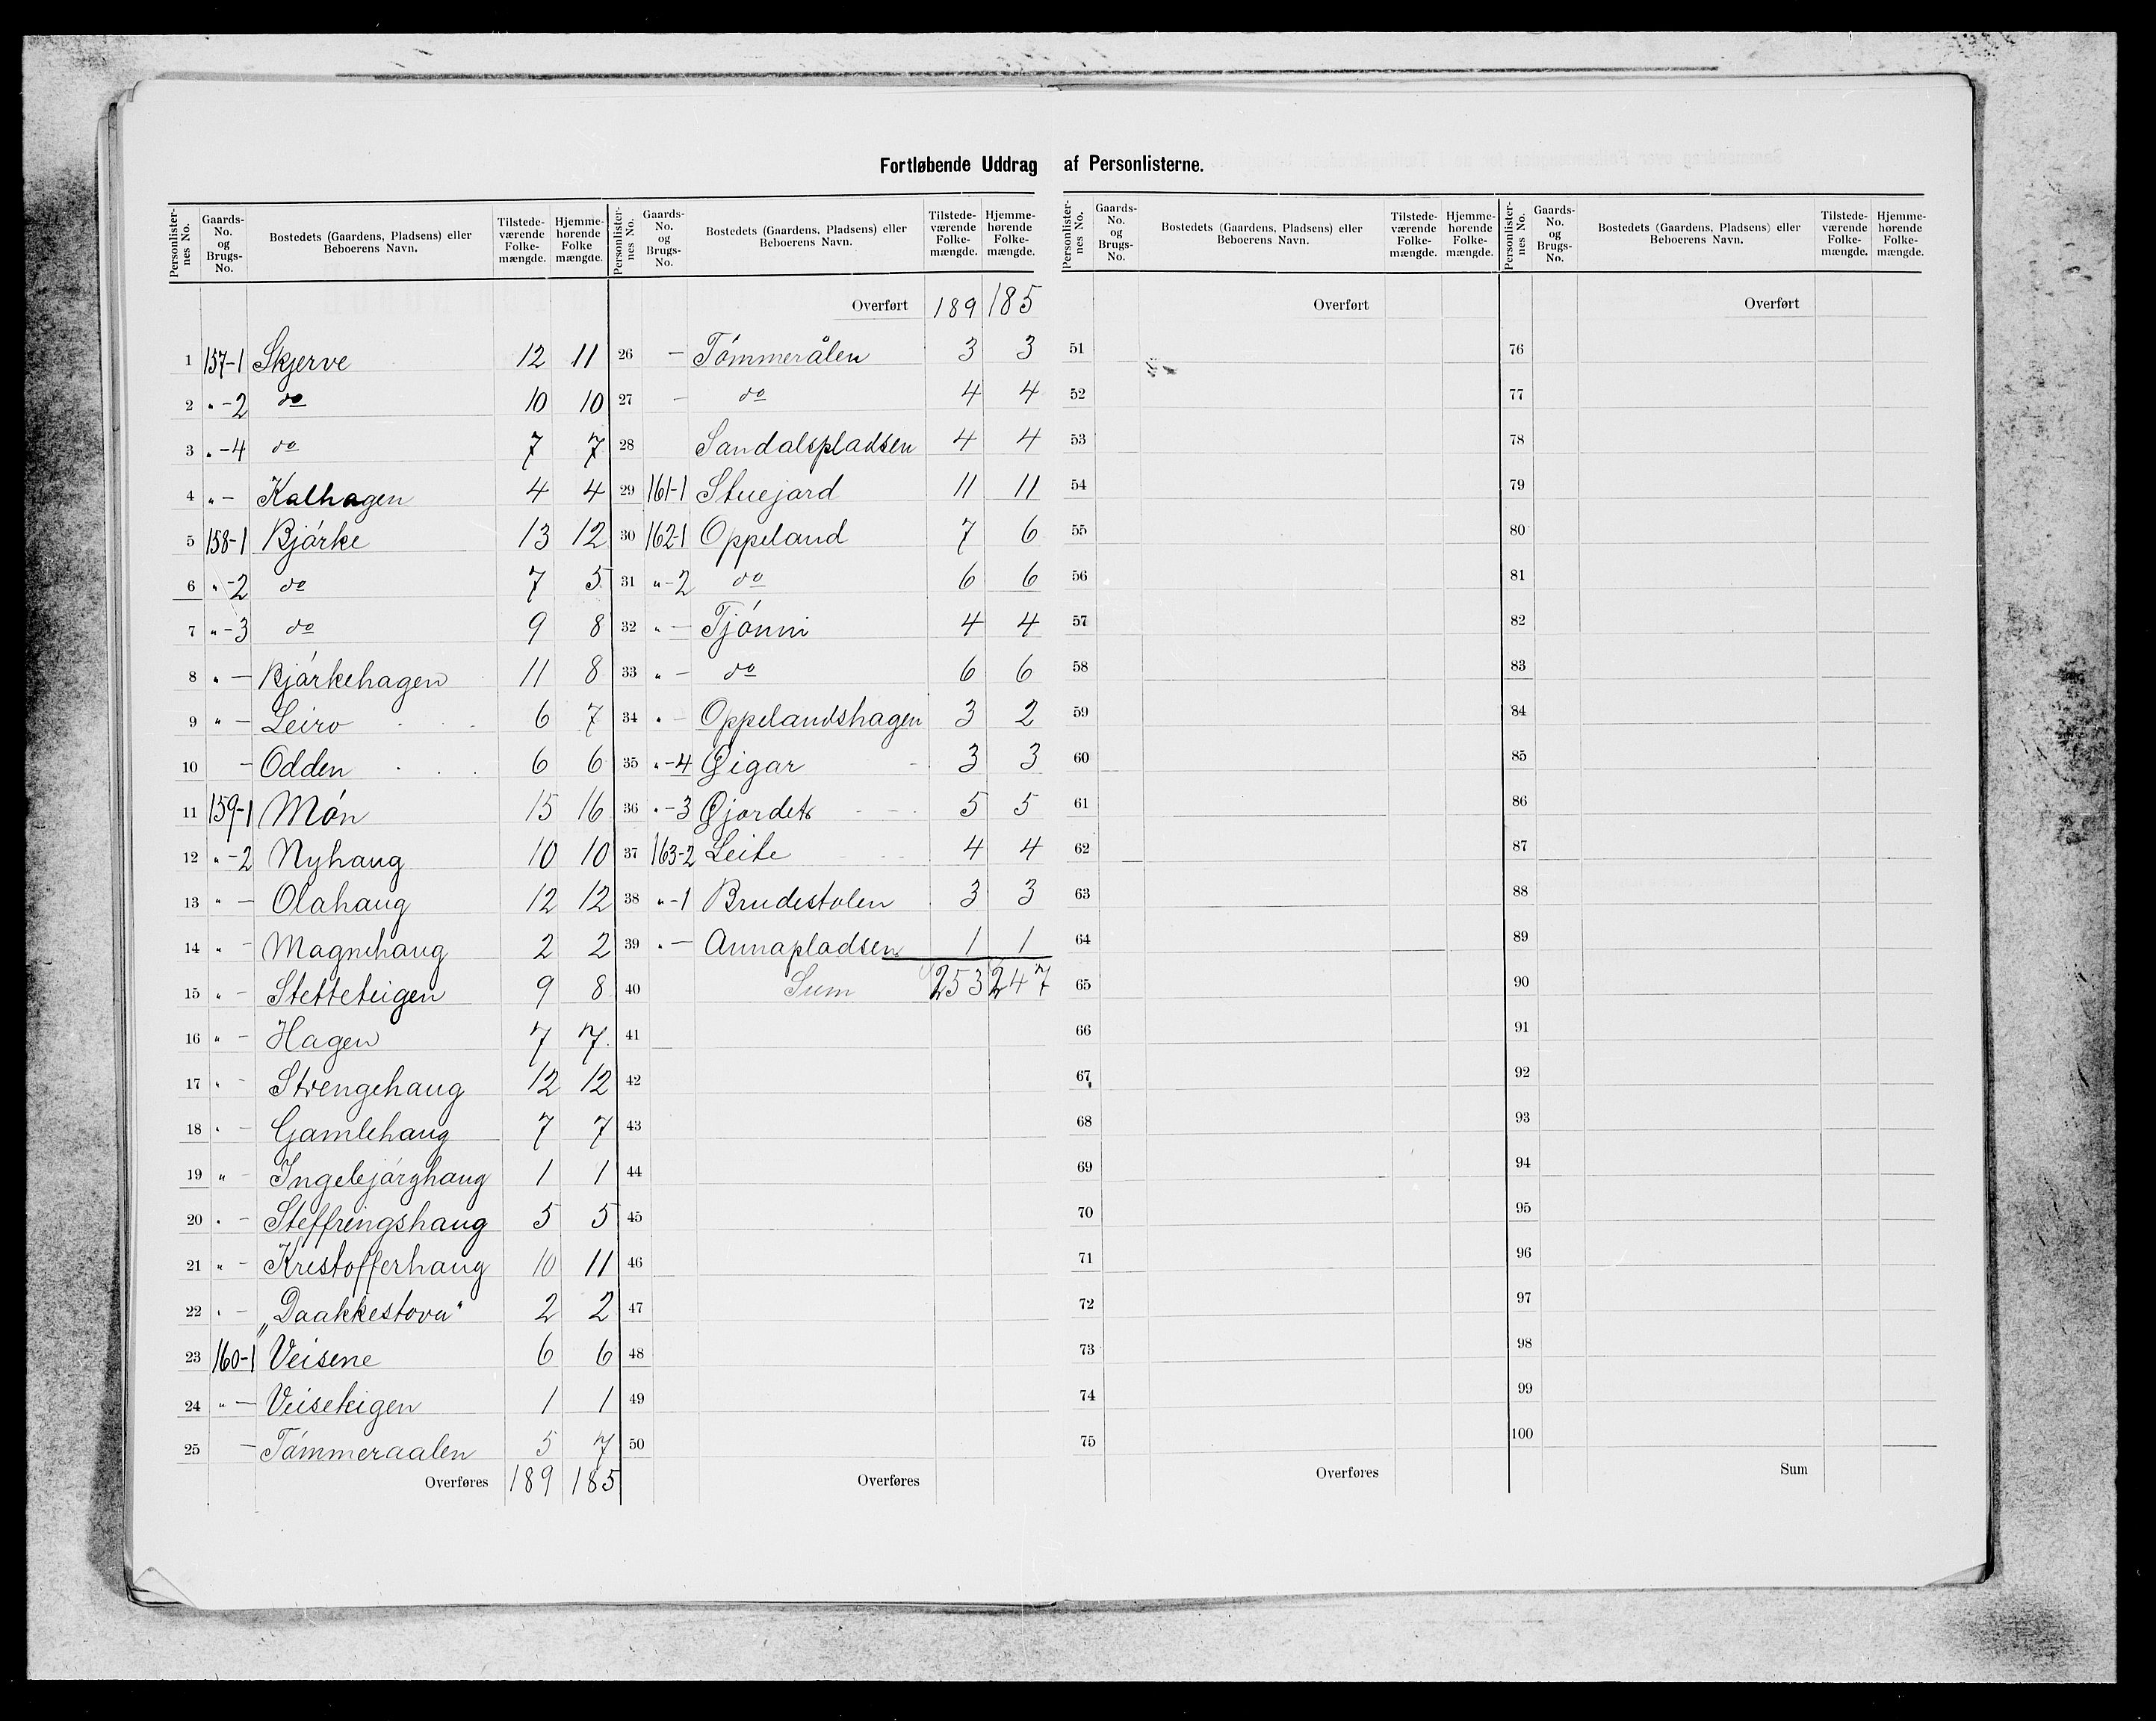 Fortløbende Uddrag af Personlisterne.
Personlister-nes No. | Gaards-No. og Brugs-No. | Bostedets (Gaardens, Pladsens) eller Beboerens Navn. | Tilstede-værende Folke-mængde. | Hjemme-hørende Folke mængde.
1 157-1 Skjerve 12 11
2 " -2 do 10 10
3 " -4 do 7 7
4 " - Kalhagen 4 4
5 158-1 Bjórke 13 12
6 " -2 do 7 5
7 " -3 do 9 8
8 " - Bjórkehagen 11 8
9 " - Leiro 6 7
10 - Odden 6 6
11 159-1 Món 15 16
12 " -2 Nyhaug 10 10
13 " - Olahaug 12 12
14 " - Magnehaug 2 2
15 " - Stetteteigen 9 8
16 " - Hagen 7 7
17 " - Strengehaug 12 12
18 " - Gamlehaug 7 7
19 " - Ingebjórghaug 1 1
20 " - Steffringshaug 5 5
21 " - Kristofferhaug 10 11
22 " - „Daakkestova" 2 2
23 160-1 Veisene 6 6
24 " - Veiseteigen 1 1
25 - Tómmeraalen 5 7
Overføres 189 185
Personlister-nes No. | Gaards-No. og Brugs-No. | Bostedets (Gaardens, Pladsens) eller Beboerens Navn. | Tilstede-værende Folke-mængde. | Hjemme-hørende Folke-mængde.
Overført 189 185
26 - Tómmerålen 3 3
27 - do 4 4
28 Sandalspladsen 4 4
29 161-1 Stuejord 11 11
30 162-1 Oppeland 7 6
31 " -2 do 6 6
32 " - Tjónni 4 4
33 " - do 6 6
34 " - Oppelandshagen 3 2
35 " -4 Gigar 3 3
36 " -3 Gjordet 5 5
37 163-2 Leite 4 4
38 " -1 Brudestolen 3 3
39 " - Annapladsen 1 1
40 Sum 253 247
41
42
43
44
45
46
47
48
49
50
Overføres
Personlister-nes No. | Gaards-No. og Brugs-No. | Bostedets (Gaardens, Pladsens) eller Beboerens Navn. | Tilstede-værende Folke-mængde. | Hjemme-hørende Folke-mængde.
Overført
51
52
53
54
55
56
57
58
59
60
61
62
63
64
65
66
67
68
69
70
71
72
73
74
75
Overføres
Personlister-nes No. | Gaards-No. og Brugs-No. | Bostedets (Gaardens, Pladsens) eller Beboerens Navn. | Tilstede-værende Folke-mængde. | Hjemme-hørende Folke-mængde.
Overført
76
77
78
79
80
81
82
83
84
85
86
87
88
89
90
91
92
93
94
95
96
97
98
99
100
Sum